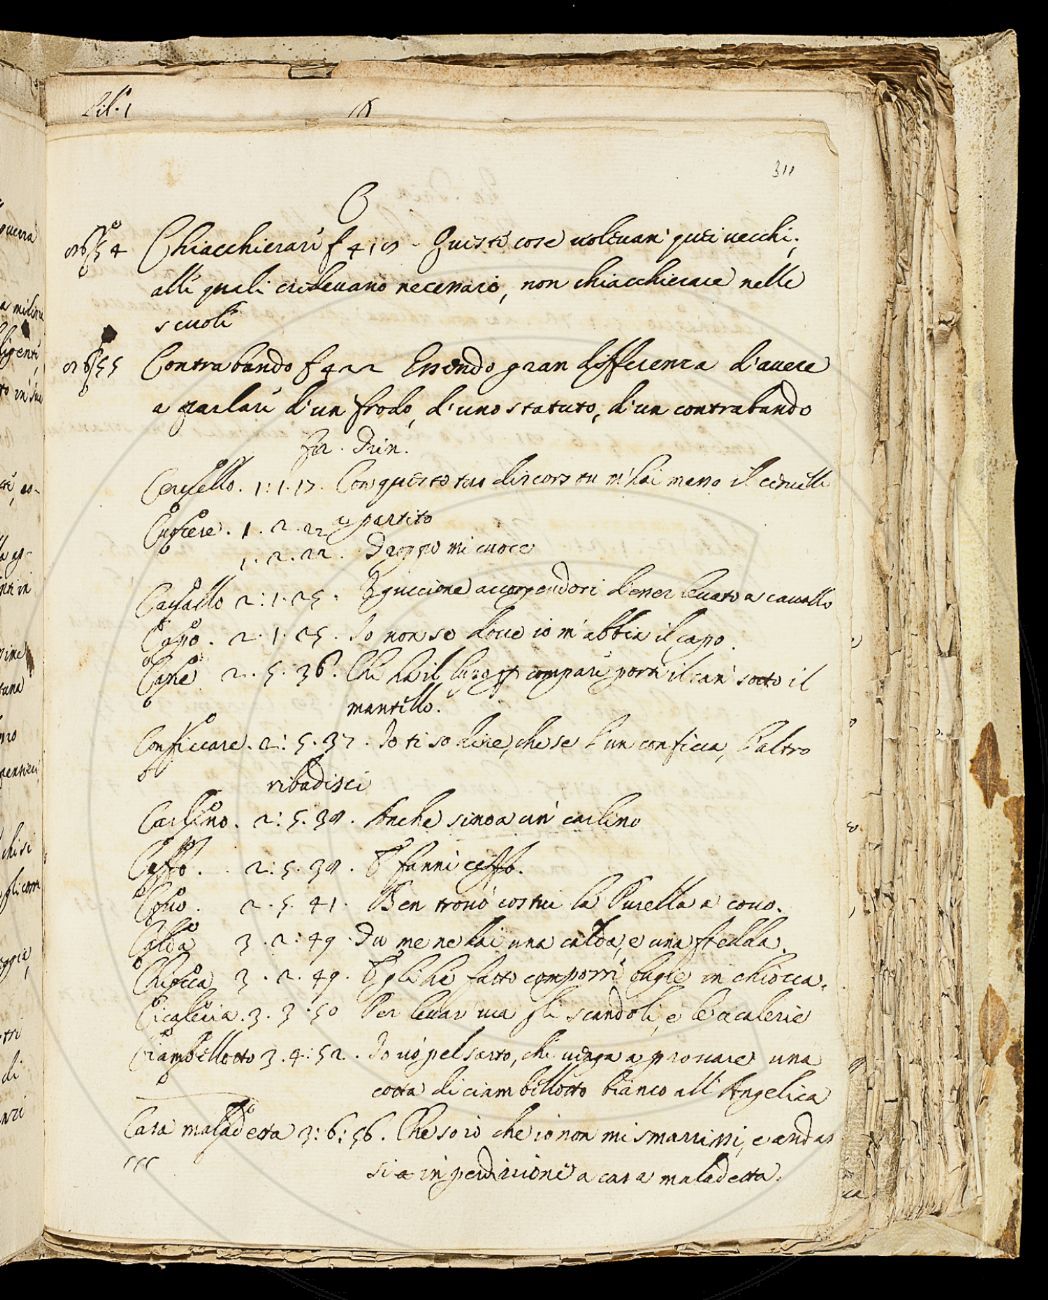 Lib. 1
311
C
Chiacchierare f 419 - Queste cose volevan quei vecchi,
alli quali credevano necessario, non chiacchierare nelle
scuole
Contrabando f 422 Essendo gran differenza d'avere
a parlare d'un frodo, d'uno statuto, d'un contrabando
Cervello. 1:1.17. Con questo tuo discorso tu m'hai messo il cervello
a partito
Cuocere. 1. 2. 22
1. 2. 22. Troppo mi cuoce
Cavallo 2:1.25. accorgendosi d'esser levato a cavallo
Capo. 2. 1. 25. Io non so dove io m'abbia il capo.
Cane. 2. 5. 36. Chi ha il lupo per compare porti il can sotto il
mantello.
Conficcare. 2: 5. 37. Io ti so dire, che se l'un conficca, l'altro
ribadisce
Carlino. 2: 5. 39. Anche sino a un carlino
Ceffo. 2: 5. 39. E fanni ceffo.
Covo. 2. 5. 41. Ben trovò costui la Pulella a covo.
Calda 3. 2: 49. Tu me ne hai una calda, e una fredda.
Chiocca 3. 2. 49. E gli hò fatto compor bugie in chiocca.
Cicaleria. 3. 3. 50 Per levar via gli scandoli, e le cicalerie
Ciambellotto 3. 4. 52. Io vò pel sarto, che venga a provare una
cotta di ciambellotto bianco all' Angelica
Casa maladetta 3: 6: 56. Che so io che io non mi smarrissi, e andas
si in perdizione a casa maladetta.